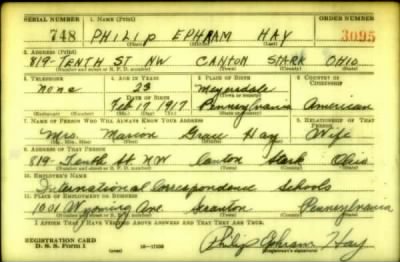 SERIAL NUMBER 1. NAME (Print) ORDER NUMBER
748 PHILIP EPHRAM HAY 3095
(First) (Middle) (Last)
2. ADDRESS (Print)
819- TENTH ST NW CANTON STARK OHIO
(Number and street or R. F. D. number) (Town) (County) (State)
3. TELEPHONE 4. AGE IN YEARS 5. PLACE OF BIRTH 6. COUNTRY OF CITIZENSHIP
None 23 Meyersdale
DATE OF BIRTH (Town or county)
Feb 17 1917 Pennsylvania American
(Mo.) (Day) (Yr.) (State or country)
7. NAME OF PERSON WHO WILL ALWAYS KNOW YOUR ADDRESS 8. RELATIONSHIP OF THAT PERSON
Mrs. Marion Grace Hay Wife
(Mr., Mrs., Miss) (First) (Middle) (Last)
9. ADDRESS OF THAT PERSON
819- Tenth St. N.W. Canton Stark Ohio
(Number and street or R. F. D. number) (Town) (County) (State)
10. EMPLOYER'S NAME
International Correspondence Schools
11. PLACE OF EMPLOYMENT OR BUSINESS
1001 Wyoming Ave. Scranton Pennsylvania
(Number and street or R. F. D. number) (Town) (County) (State)
I AFFIRM THAT I HAVE VERIFIED ABOVE ANSWERS AND THAT THEY ARE TRUE.
REGISTRATION CARD
D. S. S. Form 1 Philip Ephram Hay
(Registrant's signature)